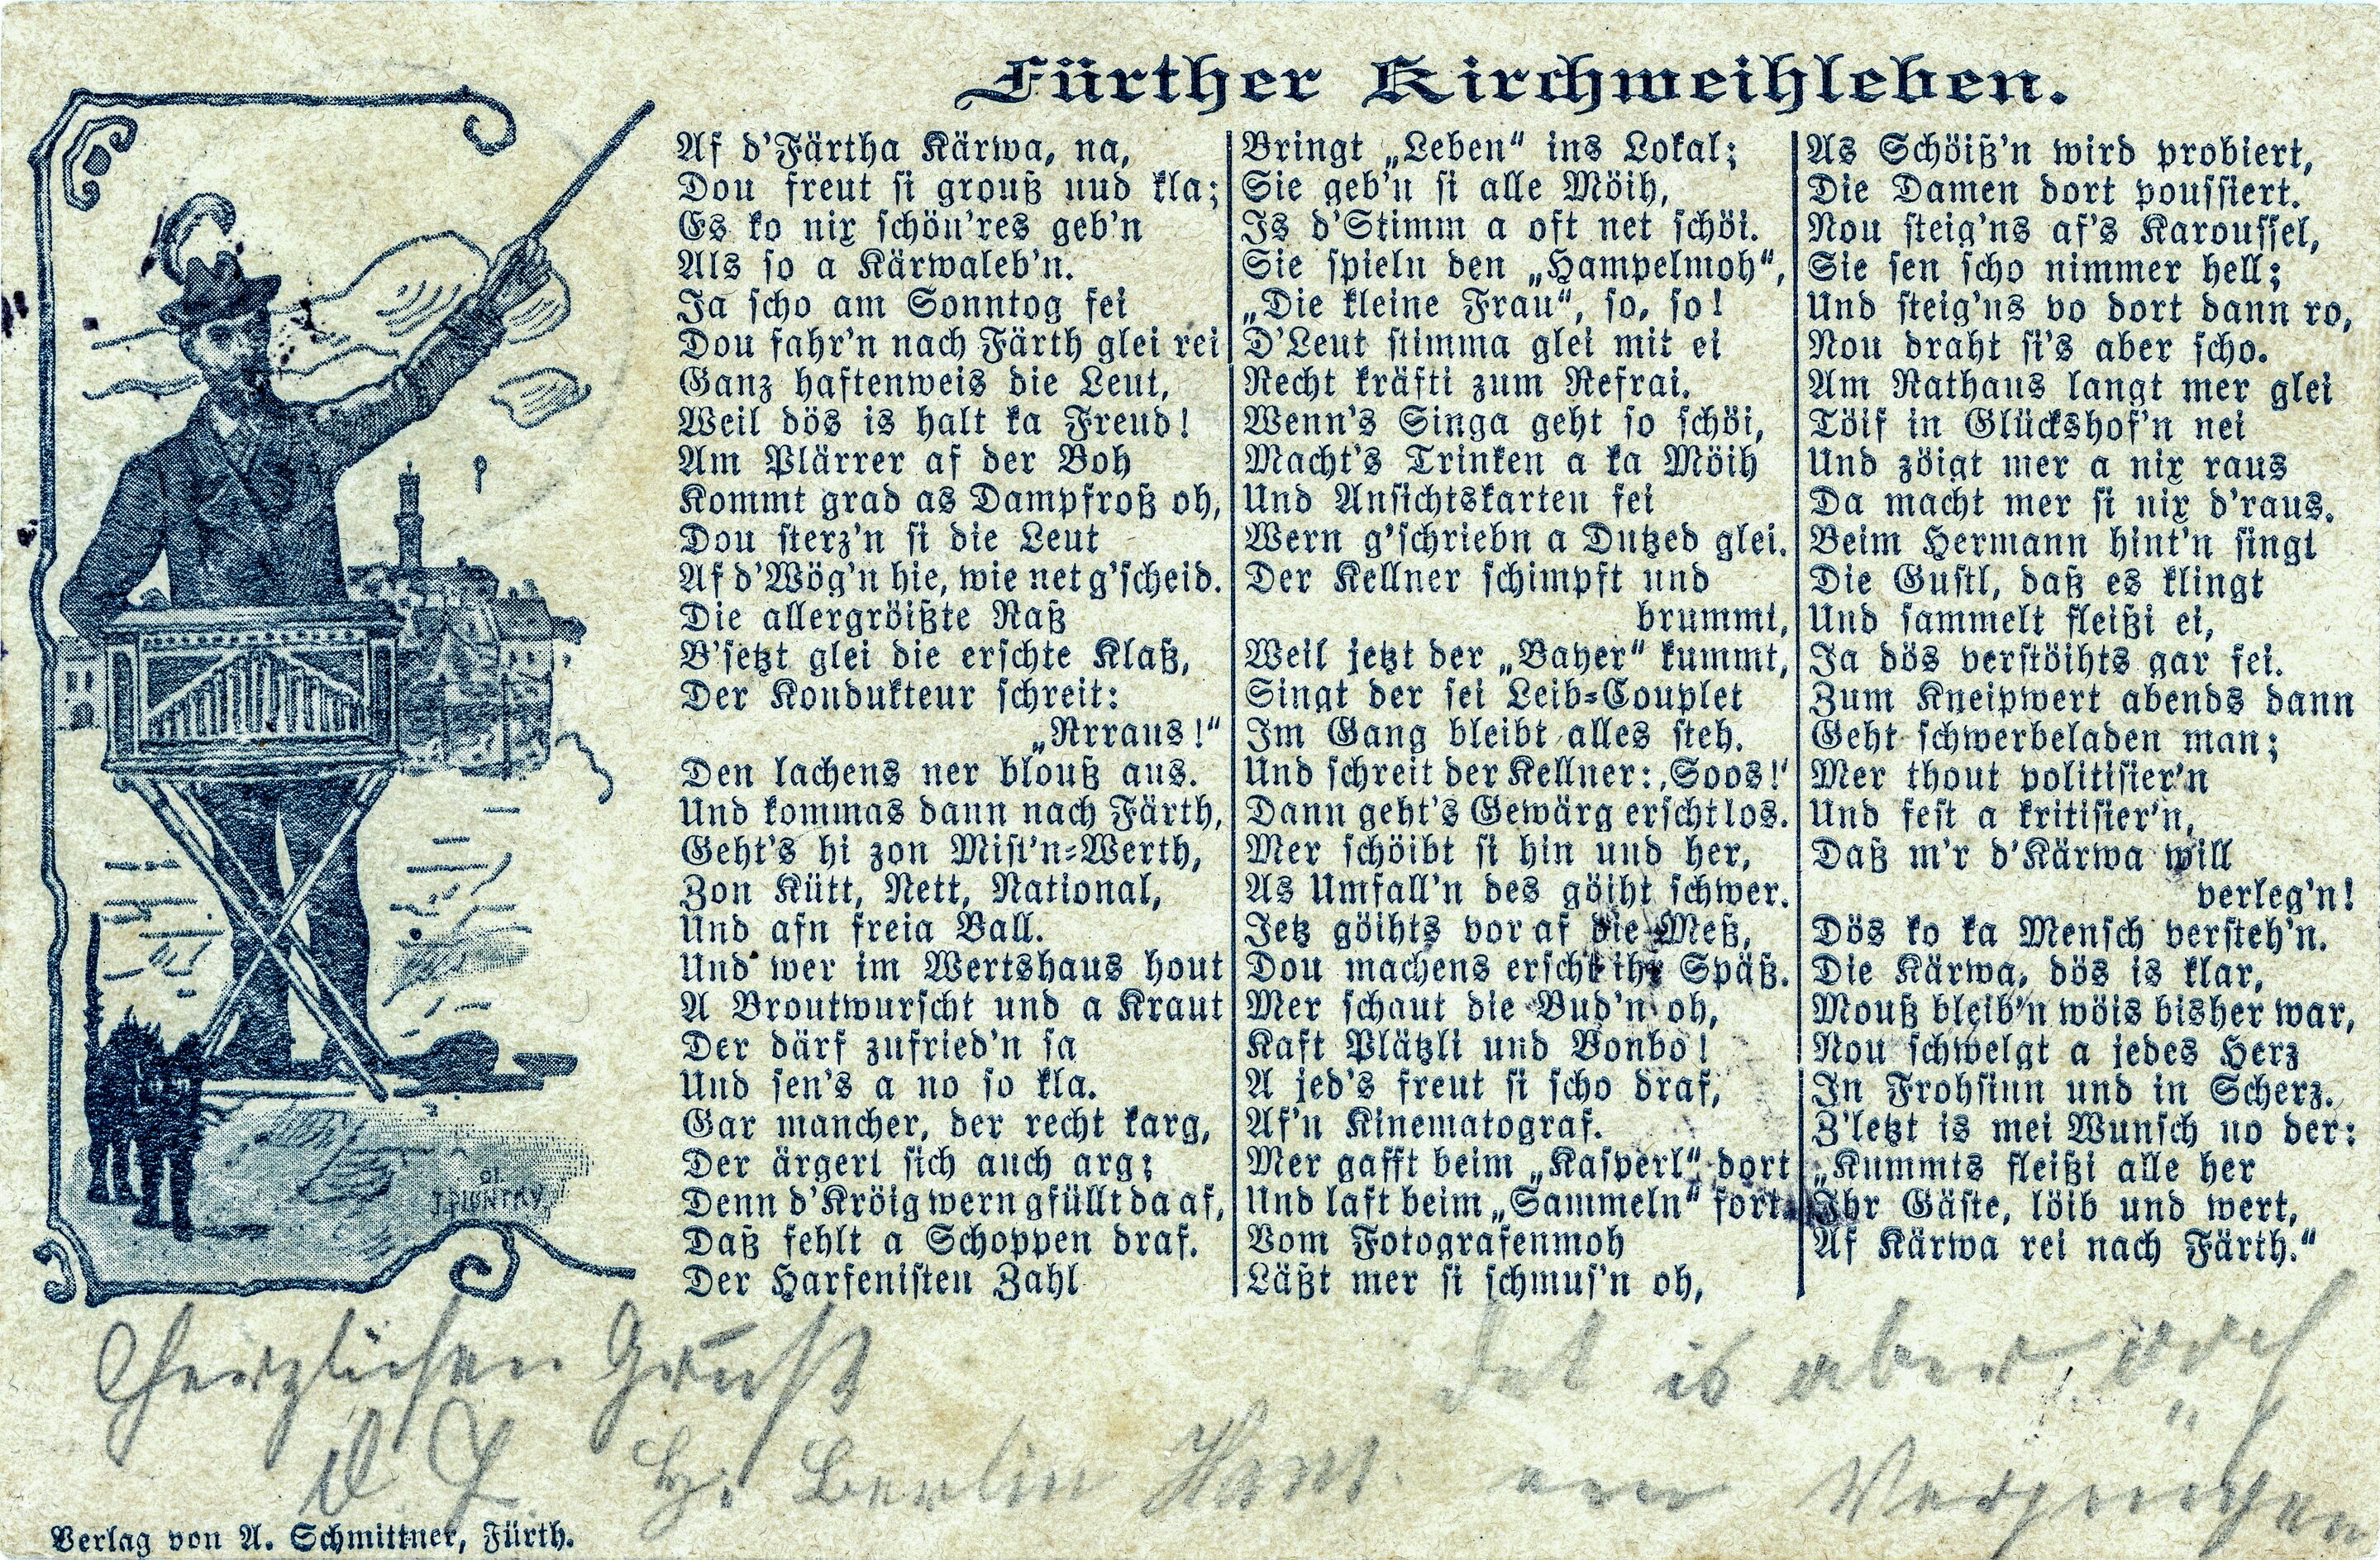 Fürther Kirchweihleben.
Af d'Färtha Kärwa, na,
Dou freut si grouß nud kla;
Es ko nix schön'res geb'n
Als so a Kärwaleb'n.
Ja scho am Sonntog fei
Dou fahr'n nach Färth glei rei
Ganz haftenweis die Leut,
Weil dös is halt ka Freud!
Am Plärrer af der Boh
Kommt grad as Dampfroß oh,
Dou sterz'n si die Leut
Af d'Wög'n hie, wie net g'scheid.
Die allergröißte Raß
B'setzt glei die erschte Klaß,
Der Kondukteur schreit:
„Rrraus!“
Den lachens ner blouß aus.
Und kommas dann nach Färth,
Geht's hi zon Mist'n-Werth,
Zon Kütt, Nett, National,
Und afn freia Ball.
Und wer im Wertshaus hout
A Broutwurscht und a Kraut
Der därf zufried'n sa
Und sen's a no so kla.
Gar mancher, der recht karg,
Der ärgert sich auch arg;
Denn d'Kröig wern gfüllt da af,
Daß fehlt a Schoppen draf.
Der Harfenisten Zahl
Bringt „Leben“ ins Lokal;
Sie geb'n si alle Möih,
Is d'Stimm a oft net schöi.
Sie spieln den „Hampelmoh“,
„Die kleine Frau“, so, so!
D'Leut stimma glei mit ei
Recht kräfti zum Refrai.
Wenn's Singa geht so schöi,
Macht's Trinken a ka Möih
Und Ansichtskarten fei
Wern g'schriebn a Dutzed glei.
Der Kellner schimpft und
brummt,
Weil jetzt der „Bayer“ kummt,
Singt der sei Leib-Couplet
Im Gang bleibt alles steh.
Und schreit der Kellner: ‚Soos!‘
Dann geht's Gewärg erscht los.
Mer schöibt si hin und her,
As Umfall'n des göiht schwer.
Jetz göihts vor af die Meß,
Dou machens erscht ihr Späß.
Mer schaut die Bud'n oh,
Kaft Plätzli und Bonbo!
A jed's freut si scho draf,
Af'n Kinematograf.
Mer gafft beim „Kasperl“ dort
Und laft beim „Sammeln“ fort.
Vom Fotografenmoh
Läßt mer si schmus'n oh,
As Schöiß'n wird probiert,
Die Damen dort poussiert.
Nou steig'ns af's Karoussel,
Sie sen scho nimmer hell;
Und steig'ns vo dort dann ro,
Nou draht si's aber scho.
Am Rathaus langt mer glei
Töif in Glückshof'n nei
Und zöigt mer a nix raus
Da macht mer si nix d'raus.
Beim Hermann hint'n singt
Die Gustl, daß es klingt
Und sammelt fleißi ei,
Ja dös verstöihts gar fei.
Zum Kneipwert abends dann
Geht schwerbeladen man;
Mer thout politisier'n
Und fest a kritisier'n,
Daß m'r d'Kärwa will
verleg'n!
Dös ko ka Mensch versteh'n.
Die Kärwa, dös is klar,
Mouß bleib'n wöis bisher war,
Nou schwelgt a jedes Herz
In Frohsinn und in Scherz.
Z'letzt is mei Wunsch no der:
„Kummts fleißi alle her
Ihr Gäste, löib und wert,
Af Kärwa rei nach Färth.“
Herzlichen Gruß
Det is aber
Berlin
ein Vergnügen
Verlag von A. Schmittner, Fürth.